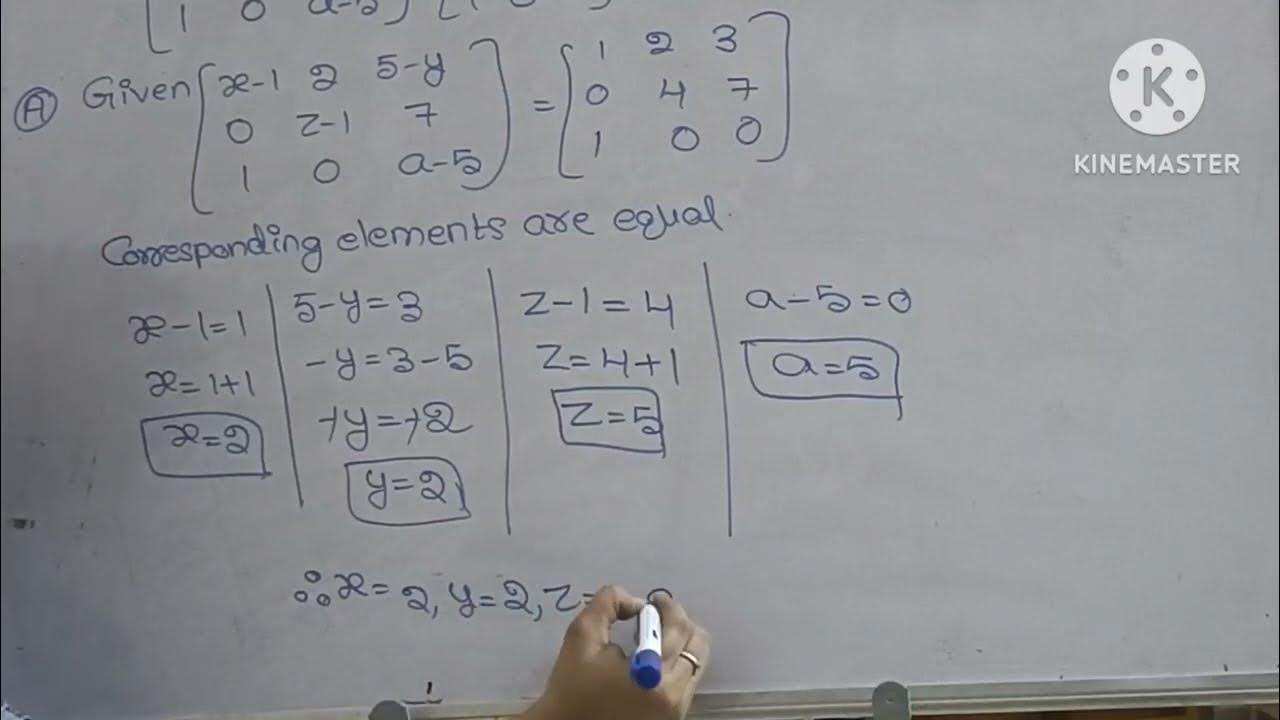 1 0 a-5
Ⓐ Given [x-1 2 5-y] = [1 2 3]
[0 z-1 7] [0 4 7]
[1 0 a-5] [1 0 0]
KINEMASTER
Corresponding elements are equal.
x-1=1
x=1+1
x=2
5-y=3
-y=3-5
+y=+2
y=2
z-1=4
z=4+1
z=5
a-5=0
a=5
∴ x= 2, y=2, z=